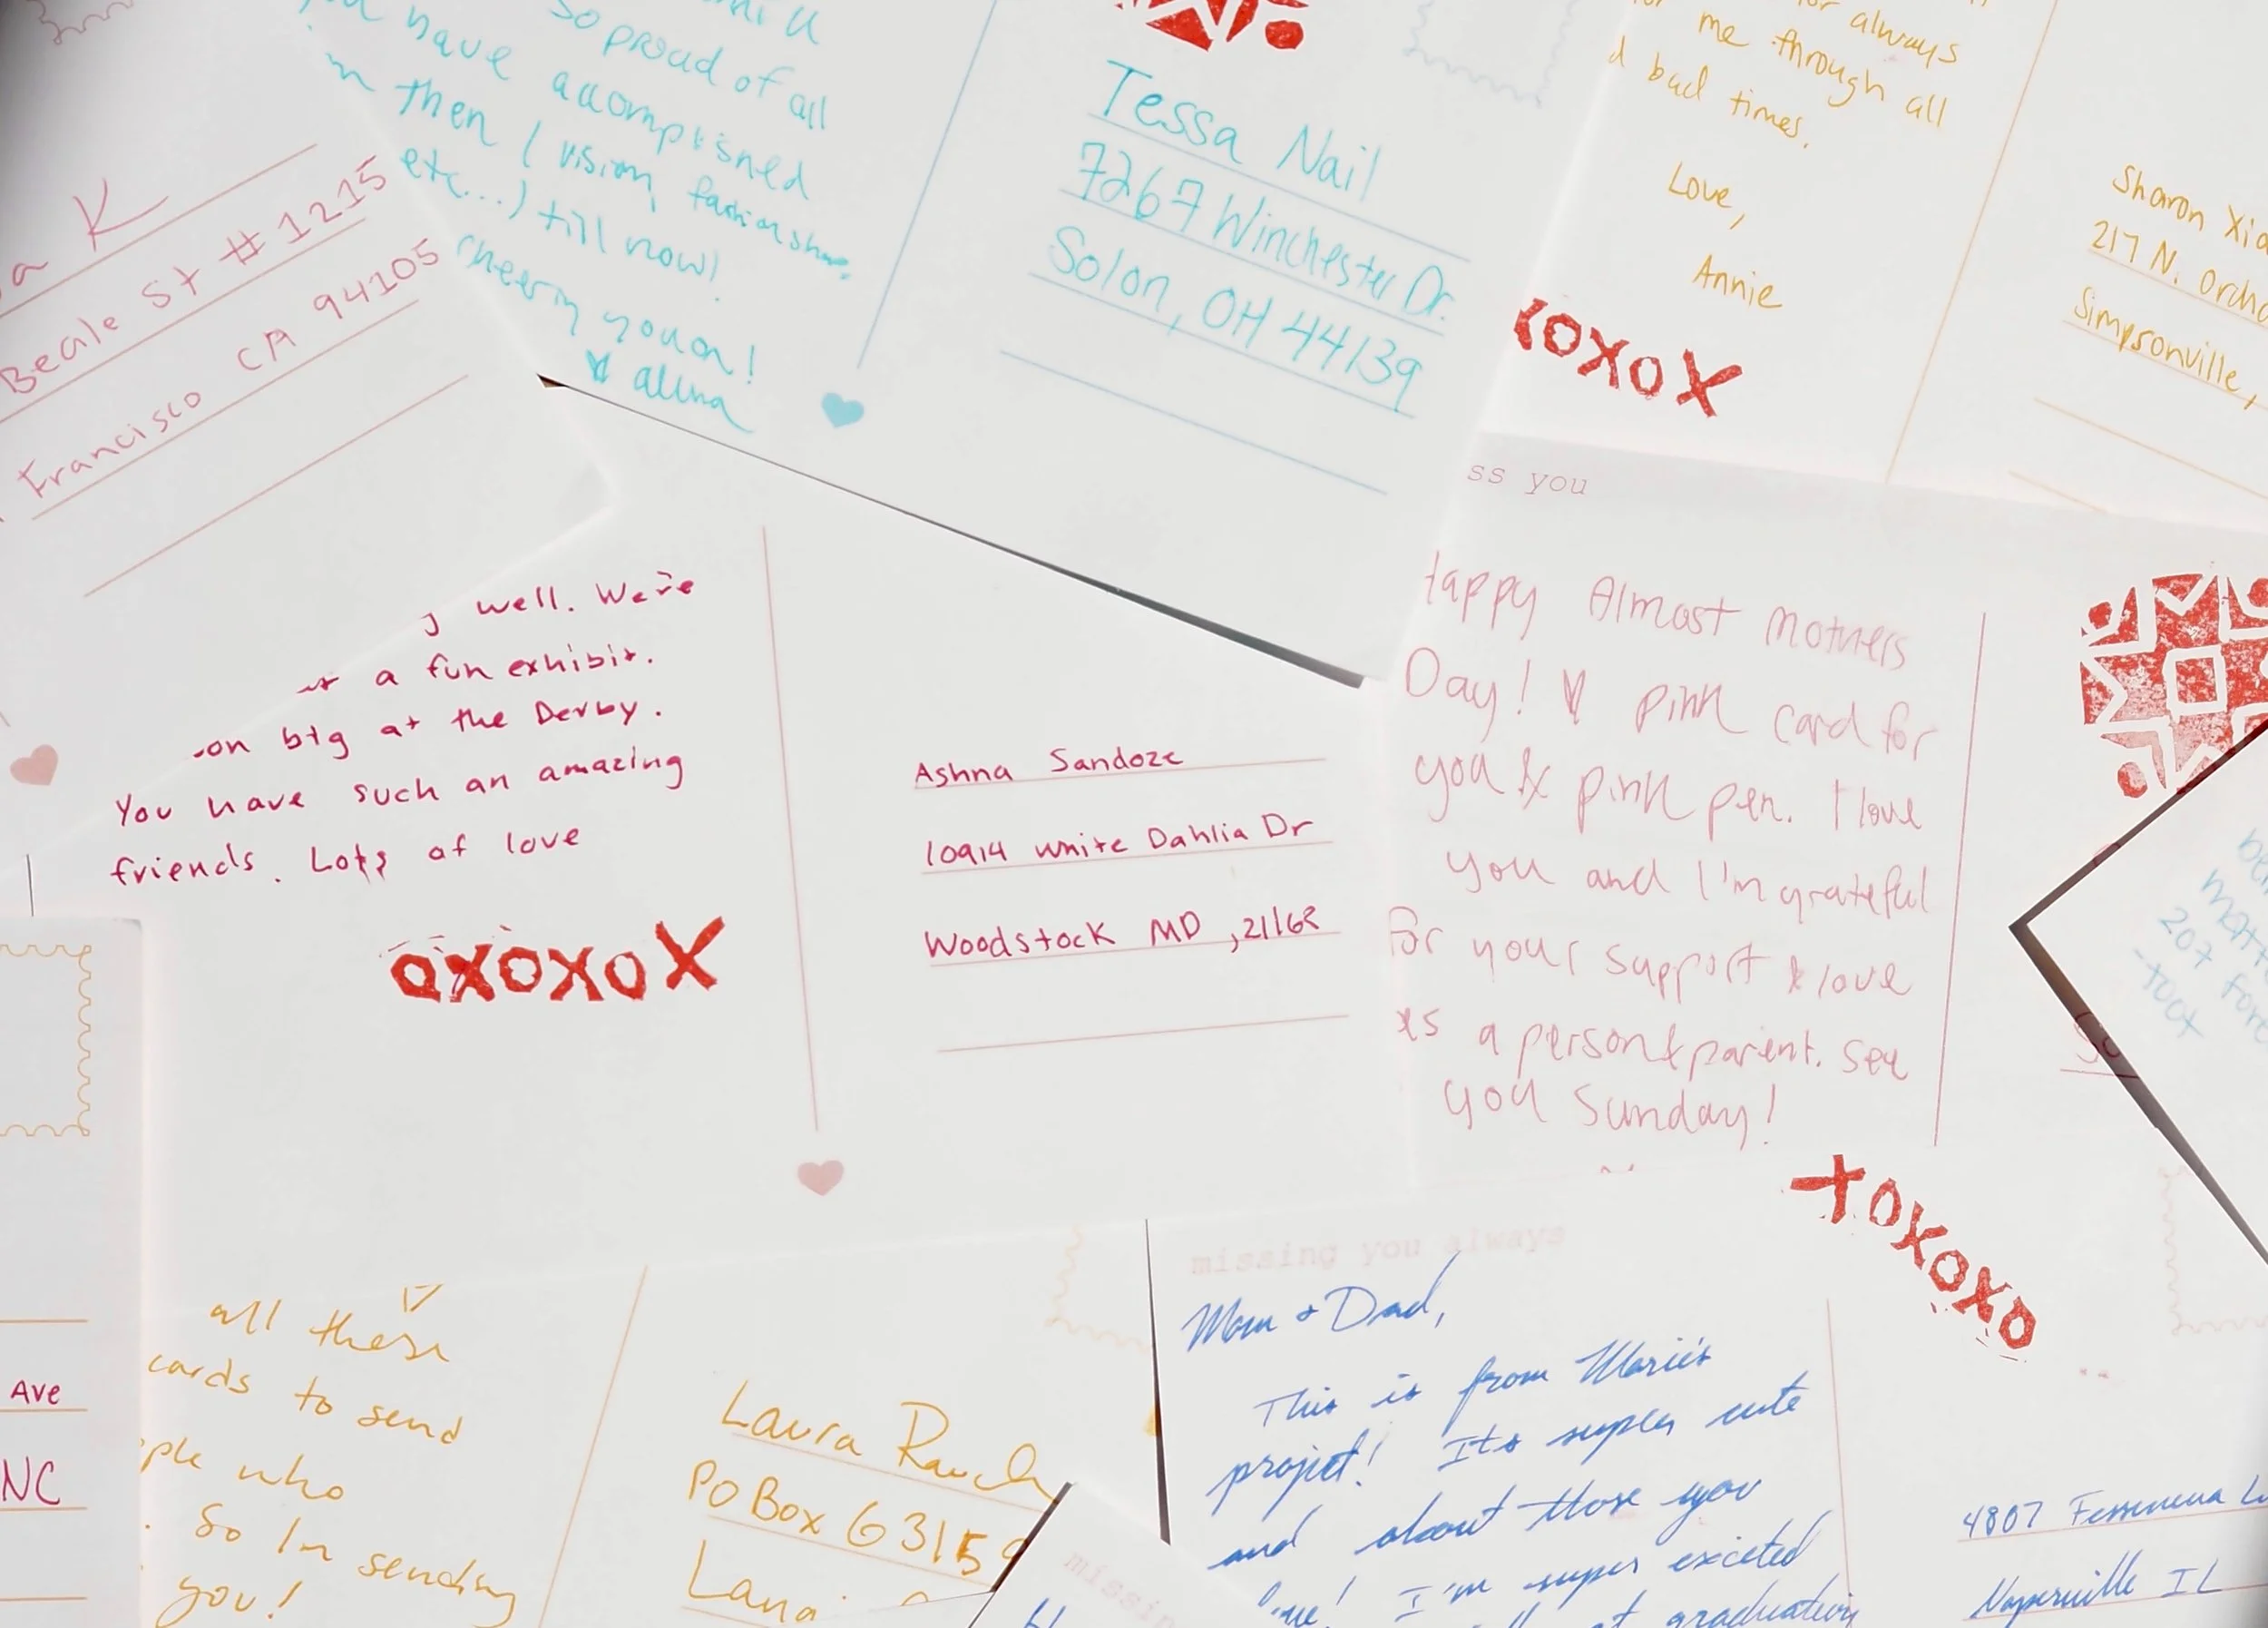 a K
Beale St #1215
Francisco CA 94105
so proud of all
have accomplished
then (vision, fashion show,
etc...) till now!
cheering you on!
alina
Tessa Nail
7267 Winchester Dr.
Solon, OH 44139
for always
me through all
d bad times.
Love,
Annie
xoxoX
Sharon
217 N.
Simpsonville,
ss you
Happy Almost Mothers
Day! pink card for
you & pink pen. I love
you and I'm grateful
for your support & love
as a person & parent. See
you Sunday!
xoxoxo
well. We're
a fun exhibit.
big at the Derby.
You have such an amazing
friends. Lots of love
oxoxoX
Ashna Sandoze
10914 White Dahlia Dr
Woodstock MD, 21162
207
Ave
NC
all these
cards to send
who
So Im sending
you!
Laura Rauch
PO Box 6315
missing you always
Mom & Dad,
This is from Marie's
project! Its super cute
and about those you
I'm super excited
at graduation
4807
Naperville IL
missin